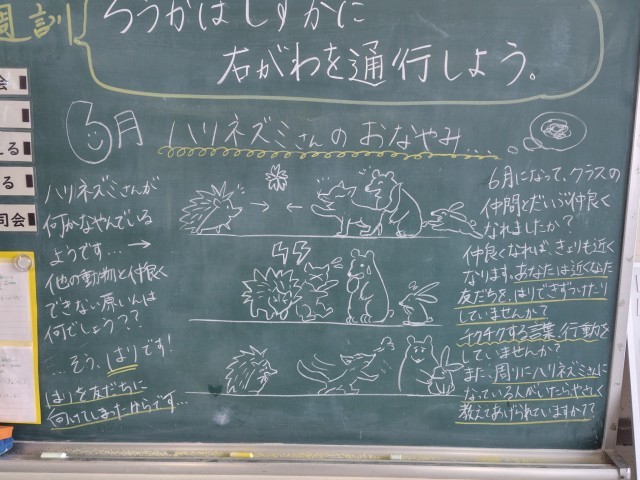 週
ろうかはしずかに
右がわを通行しよう。
会
える
る
司会
6月
ハリネズミさんのおなやみ...
ハリネズミさんが
何かなやんでいる
ようです...→
他の動物と仲良く
できない原いんは
何でしょう??
...そう、はりです!
はりを友だちに
向けてしまったからです...
6月になって、クラスの
仲間とだいぶ仲良く
なれましたか?
仲良くなれば、きょりも近く
なります。あなたは近くなった
友だちを、はりできずつけたり
していませんか?
チクチクする言葉、行動を
していませんか?
また、周りにハリネズミさんに
なっている人がいたらやさしく
教えてあげられていますか??